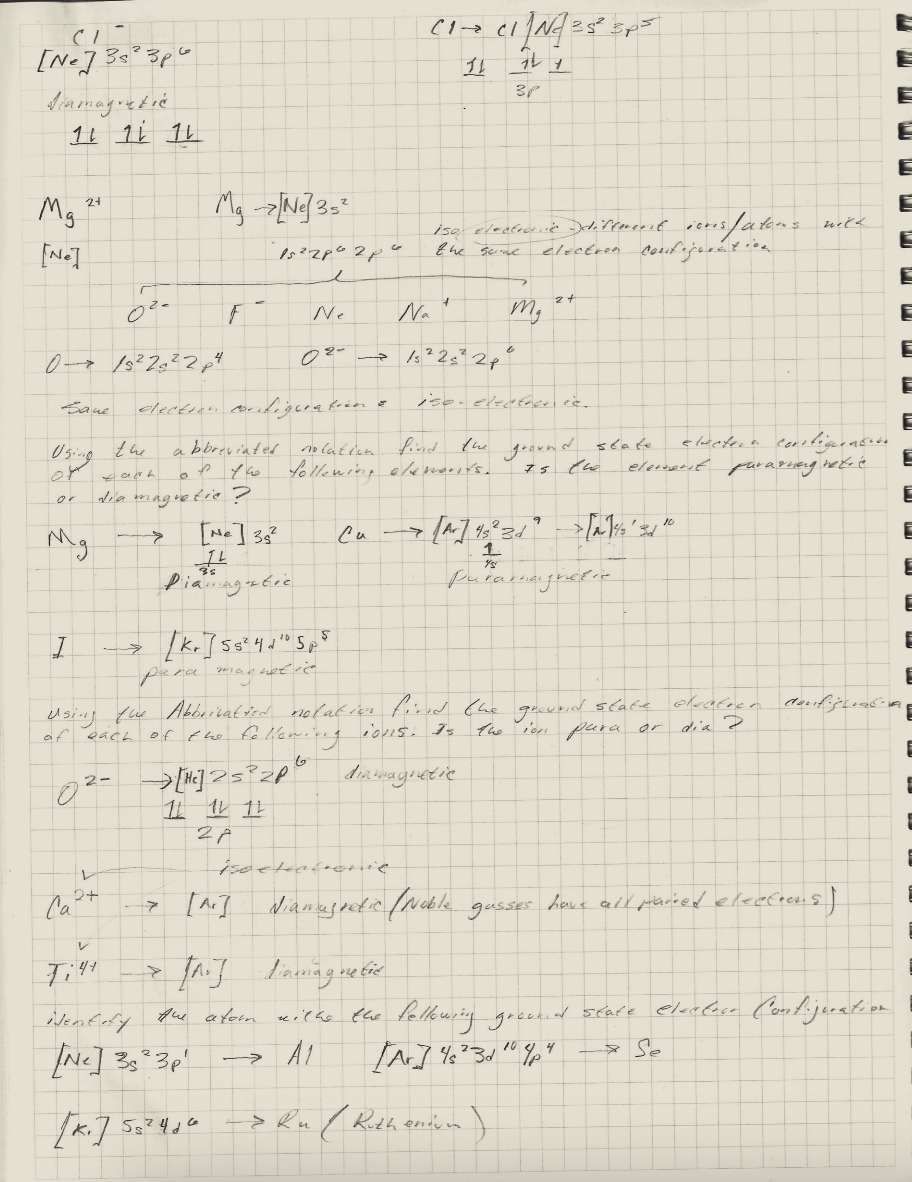 Cl⁻
[Ne] 3s² 3p⁶
diamagnetic
1l 1l 1l
Cl → Cl [Ne] 3s² 3p⁵
1l 1l 1
3p
Mg²⁺ Mg → [Ne] 3s²
[Ne]
iso electronic → different ions/atoms with
the same electron configuration
1s² 2p⁶ 2p⁶
O²⁻ F⁻ Ne Na⁺ Mg²⁺
O → 1s² 2s² 2p⁴ O²⁻ → 1s² 2s² 2p⁶
Same electron configuration = iso-electronic.
Using the abbreviated notation find the ground state electron configuration
of each of the following elements. Is the element paramagnetic
or diamagnetic?
Mg → [Ne] 3s² Cu → [Ar] 4s² 3d⁹ → [Ar] 4s¹ 3d¹⁰
1l 1
3s 4s
Diamagnetic paramagnetic
I → [Kr] 5s² 4d¹⁰ 5p⁵
para magnetic
Using the Abbriviatied notation find the ground state electron configuration
of each of the following ions. Is the ion para or dia?
O²⁻ → [He] 2s² 2p⁶ diamagnetic
1l 1l 1l
2p
isoelectronic
Ca²⁺ → [Ar] diamagnetic (Noble gasses have all paired electrons)
Ti⁴⁺ → [Ar] diamagnetic
identify the atom withe the following ground state electron Configuration
[Ne] 3s² 3p¹ → Al [Ar] 4s² 3d¹⁰ 4p⁴ → Se
[Kr] 5s² 4d⁶ → Ru (Ruthenium)